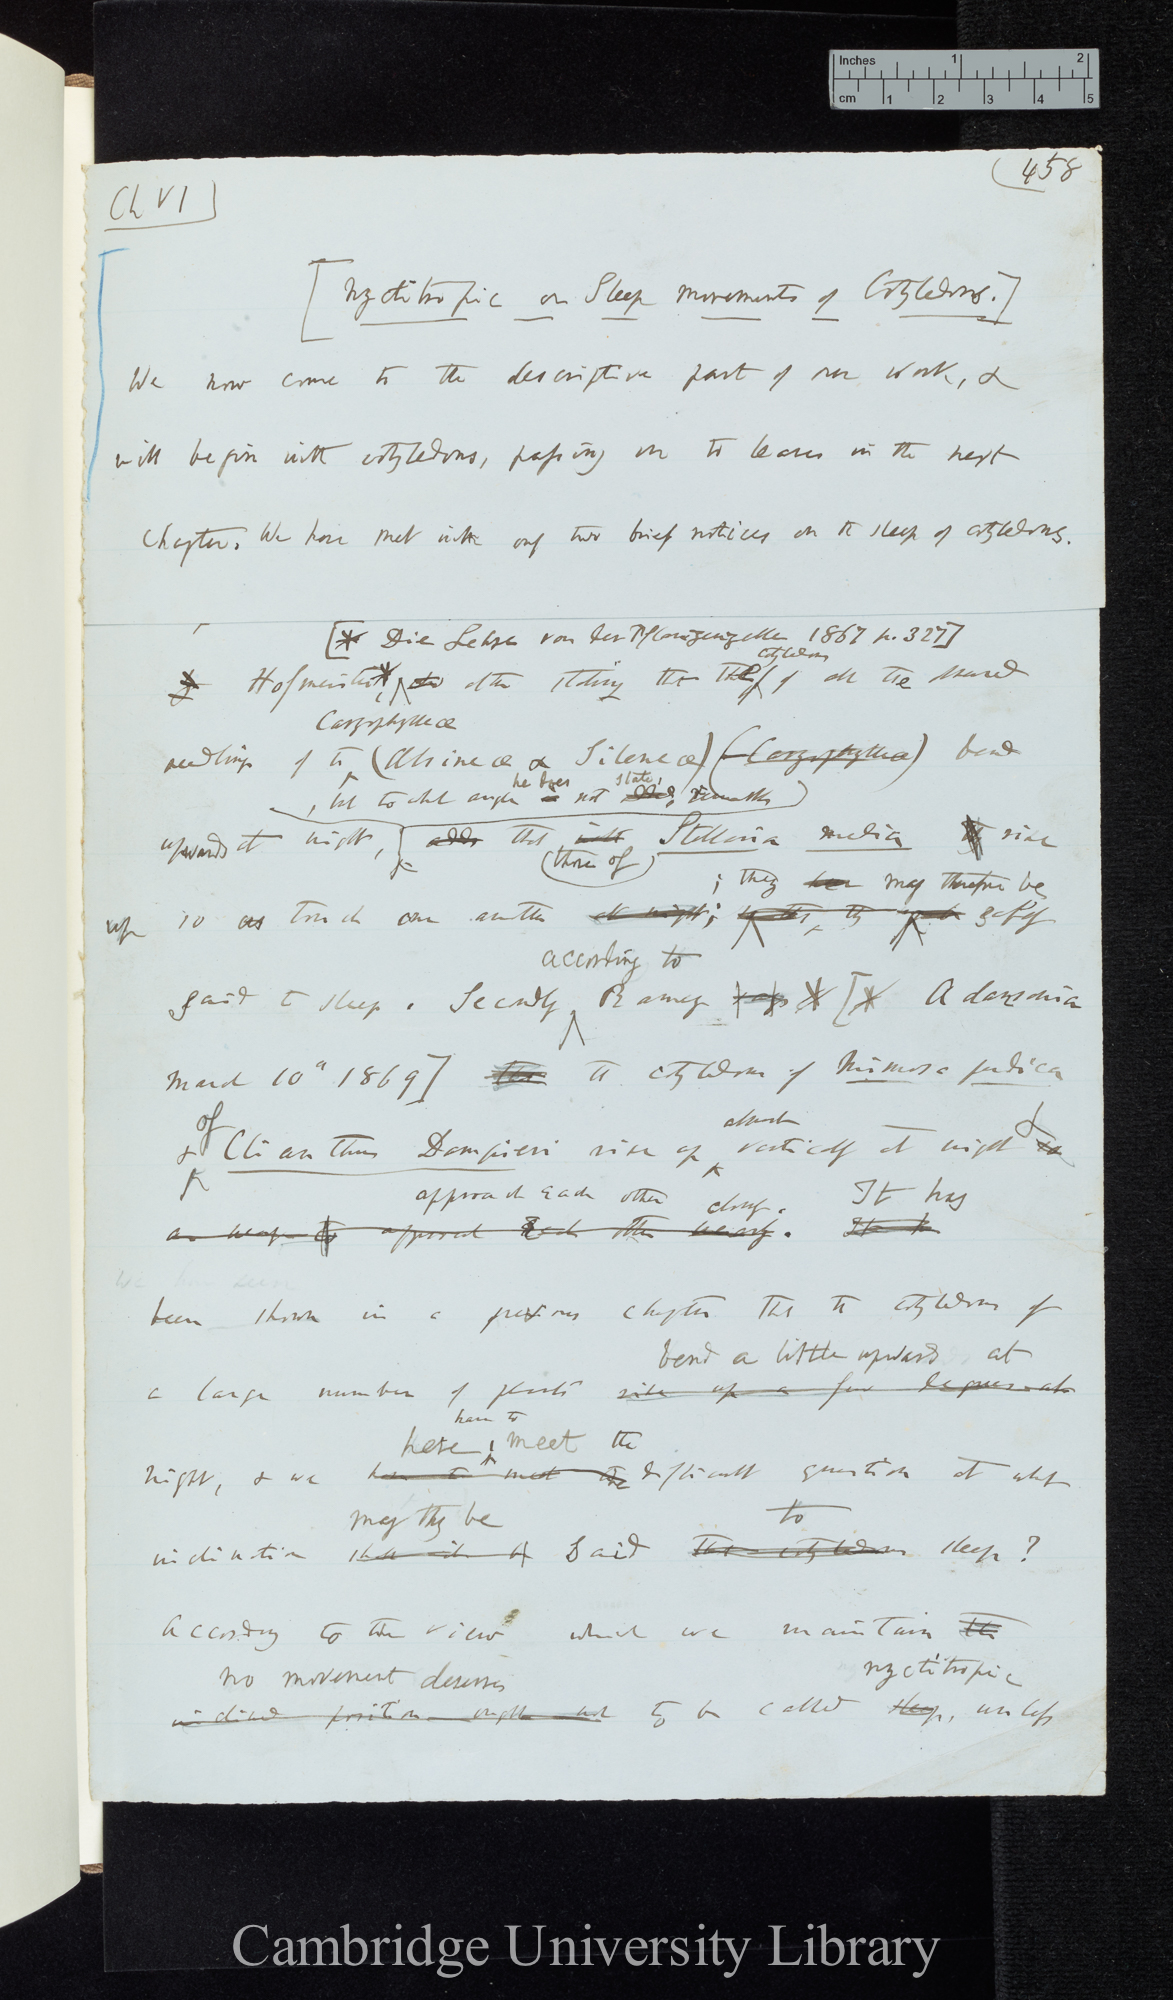 Inches 1 2
cm 1 2 3 4 5
(458
Ch VI]
[Nyctitropic or Sleep movements of Cotyledons.]
We now come to the descriptive part of our work, &
will begin with cotyledons, passing on to leaves in the next
chapter. We have met with only two brief notices on the sleep of cotyledons.
[* Die Lehre von der Pflanzenzelle 1867 p. 327]
cotyledons
Hofmeister*, after stating that the of all the observed
Caryophylleæ
seedlings of the (Alsineæ & Sileneæ) (Caryophylleæ) bend
, but to what angle he does not state, remarks)
upwards at night, adds that with Stellaria media rise
(those of)
; they may therefore be
up so as touch one another at night; safely
according to
said to sleep. Secondly, Ramey says * [* Adansonia
March 10th 1869] that the cotyledons of Mimosa pudica
of almost &
& Clianthus Dampieri rise up vertically at night
approach each other closely. It has
approach each other nearly.
We have seen
been shown in a previous chapter that the cotyledons of
bend a little upwards at
a large number of plants rise up a few degrees at
have to
here, meet the
night, & we have to meet the difficult question at what
may they be to
inclination said the cotyledons sleep?
According to the view which we maintain the
no movement deserves nyctitropic
inclined position ought not to be called sleep, unless
Cambridge University Library